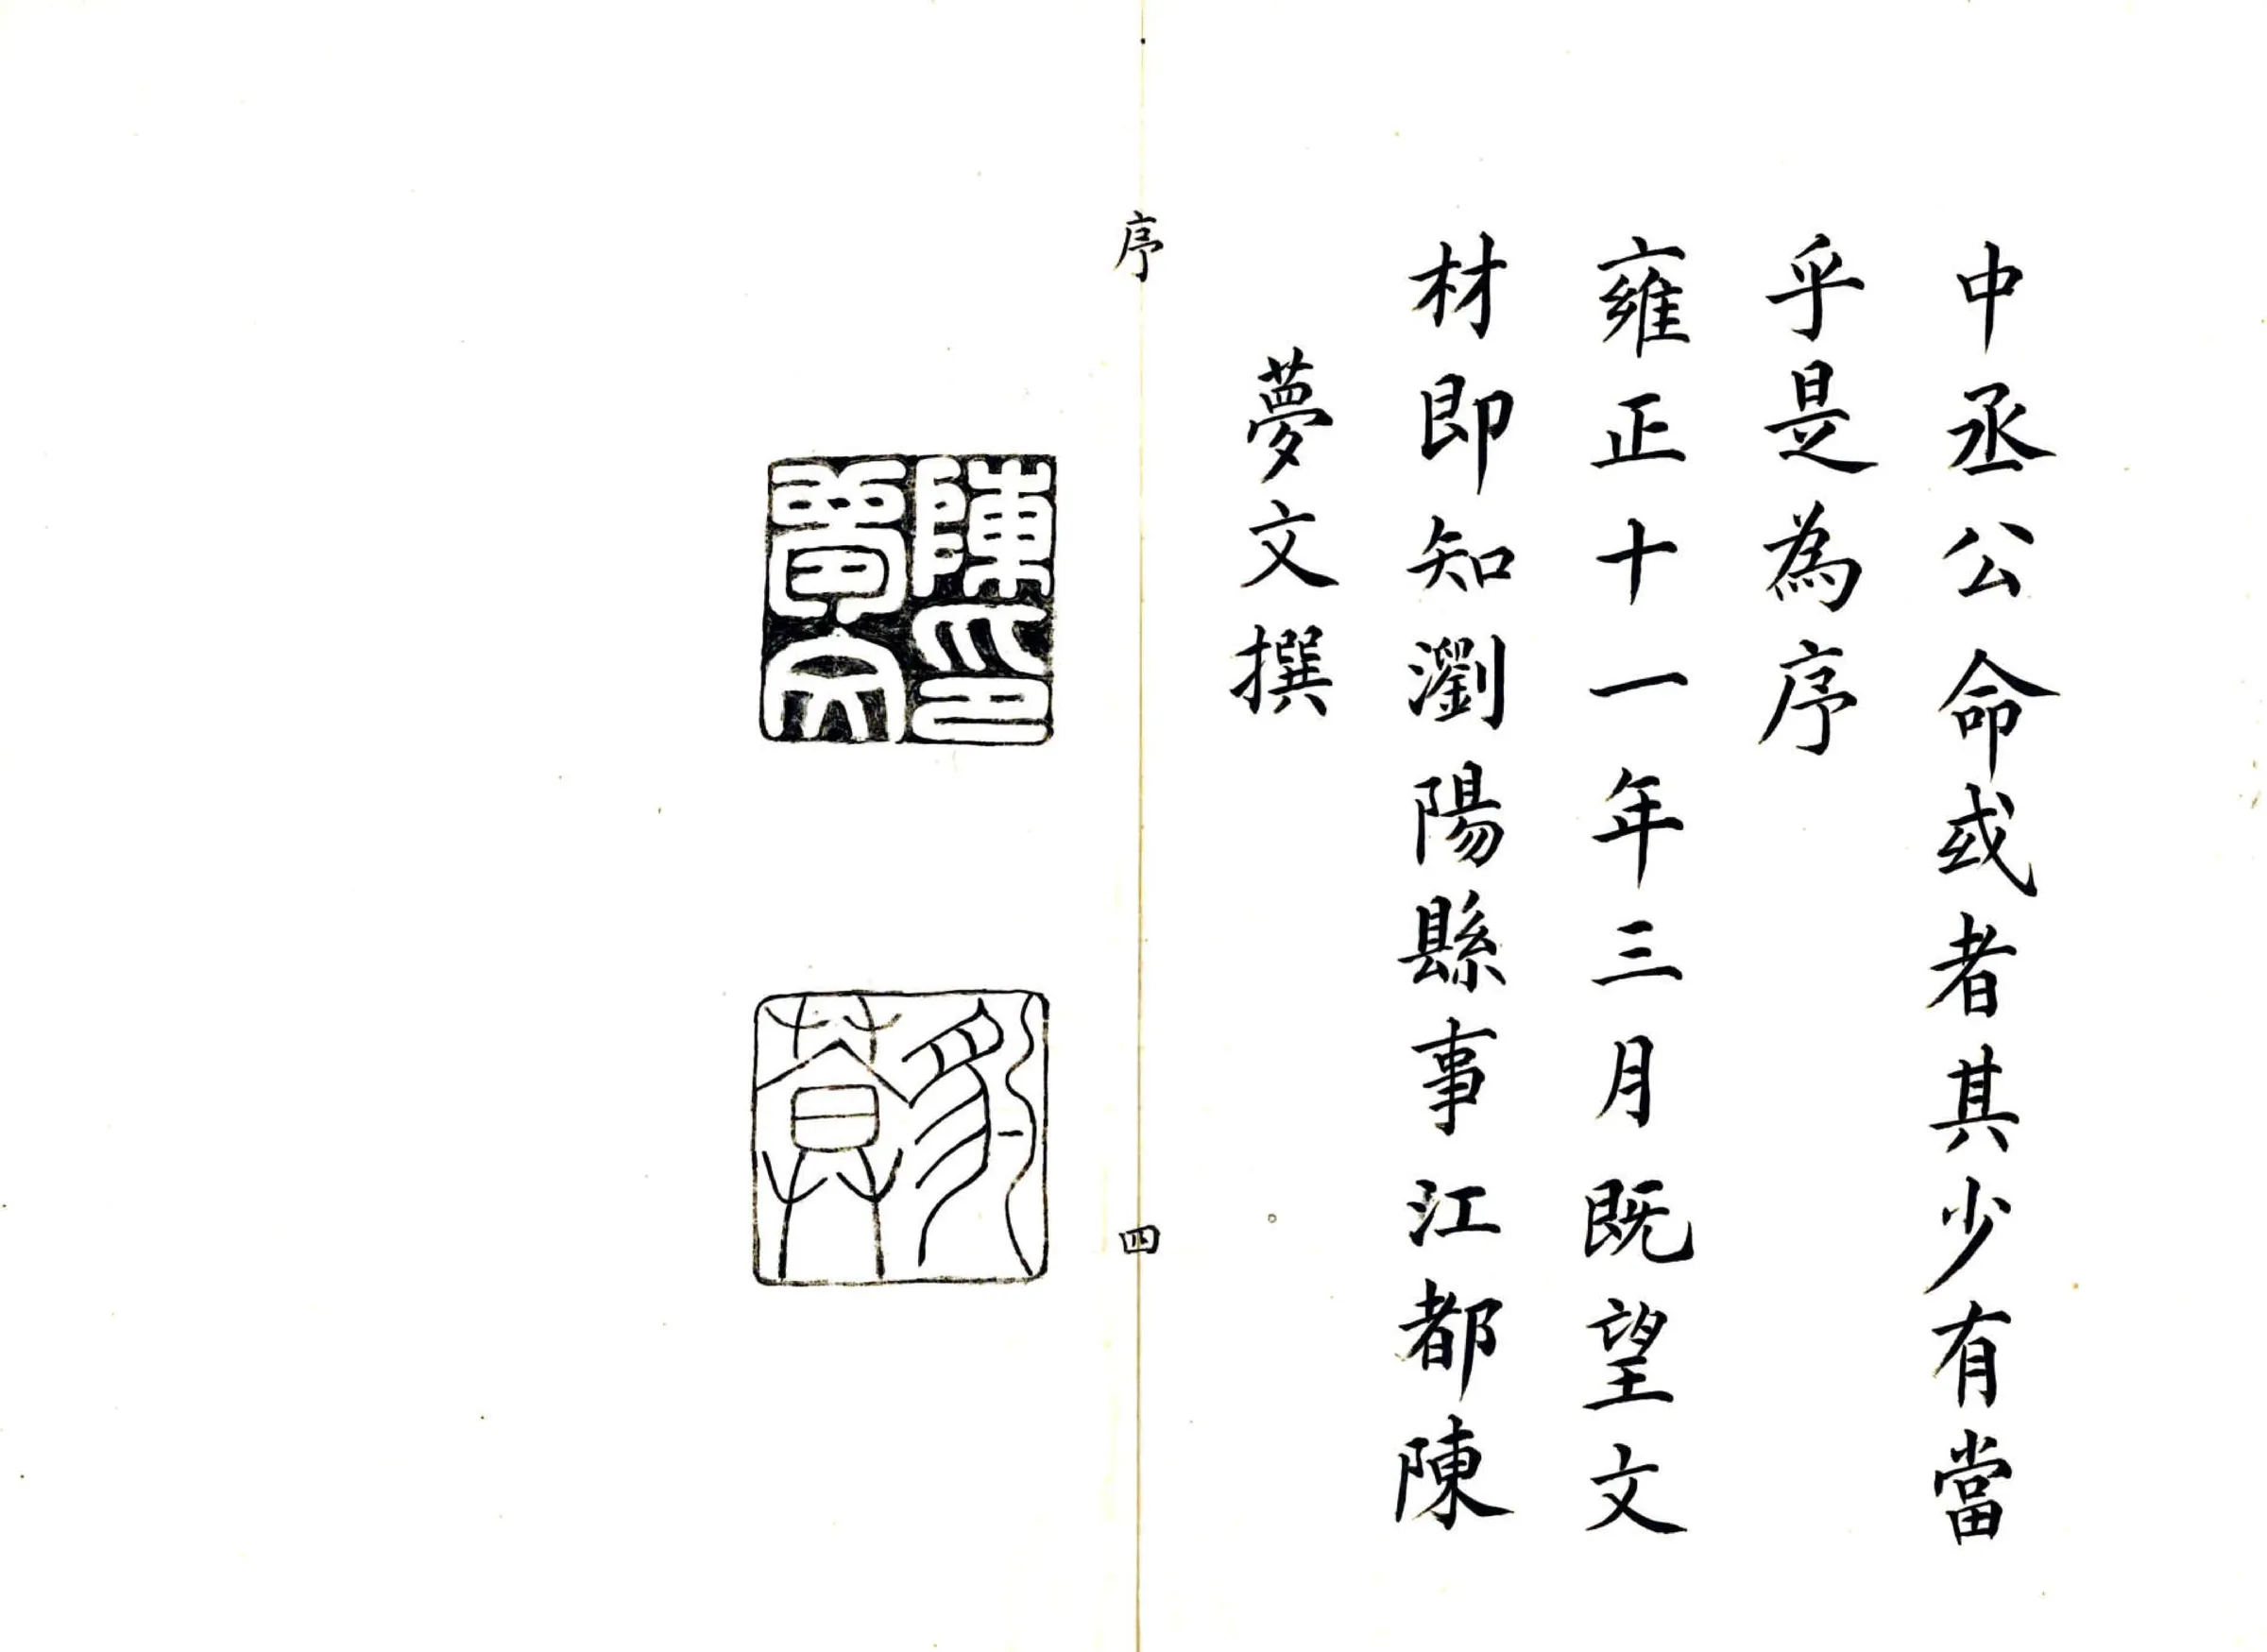 中丞公命或者其少有當
乎是為序
雍正十一年三月既望文
材即知瀏陽縣事江都陳
夢文撰
序
四
陳印
夢文